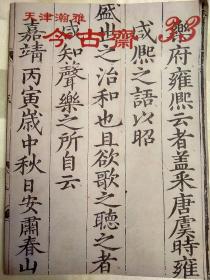 天津瀚雅
今古齋 33
樂府雍熙云者蓋采唐虞時雍
咸熙之語以昭
盛世之治和也且欲歌之聽之者
咸知聲樂之所自云
嘉靖丙寅歲中秋日安肅春山